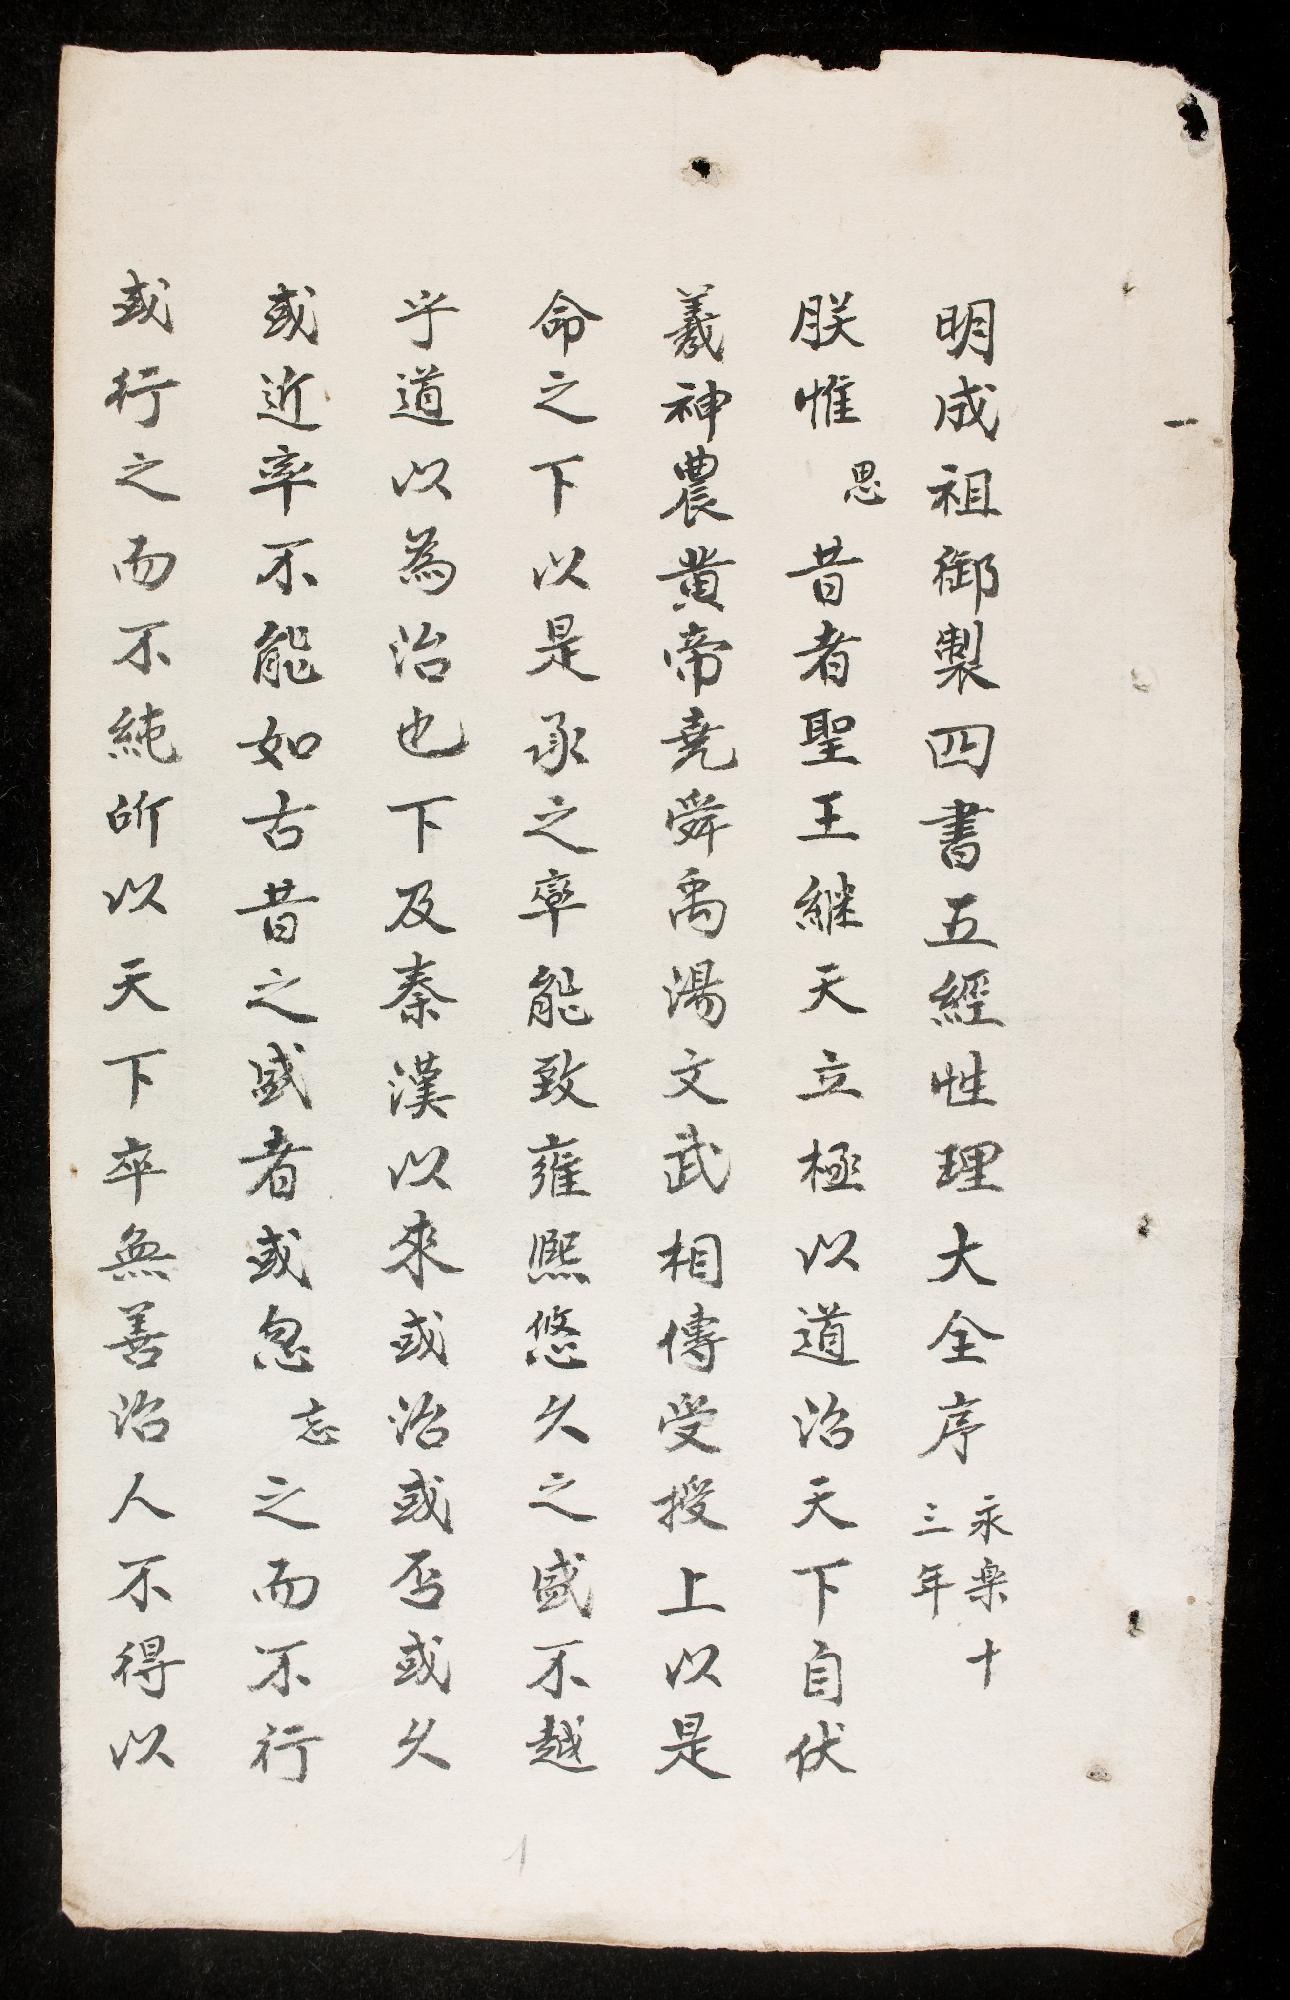 一
明成祖御製四書五經性理大全序 永樂十三年
朕惟思昔者聖王継天立極以道治天下自伏
羲神農黃帝堯舜禹湯文武相傳受授上以是
命之下以是承之率能致雍熙悠久之盛不越
乎道以為治也下及秦漢以來或治或否或久
或近率不能如古昔之盛者或忽忘之而不行
或行之而不純所以天下卒無善治人不得以
1